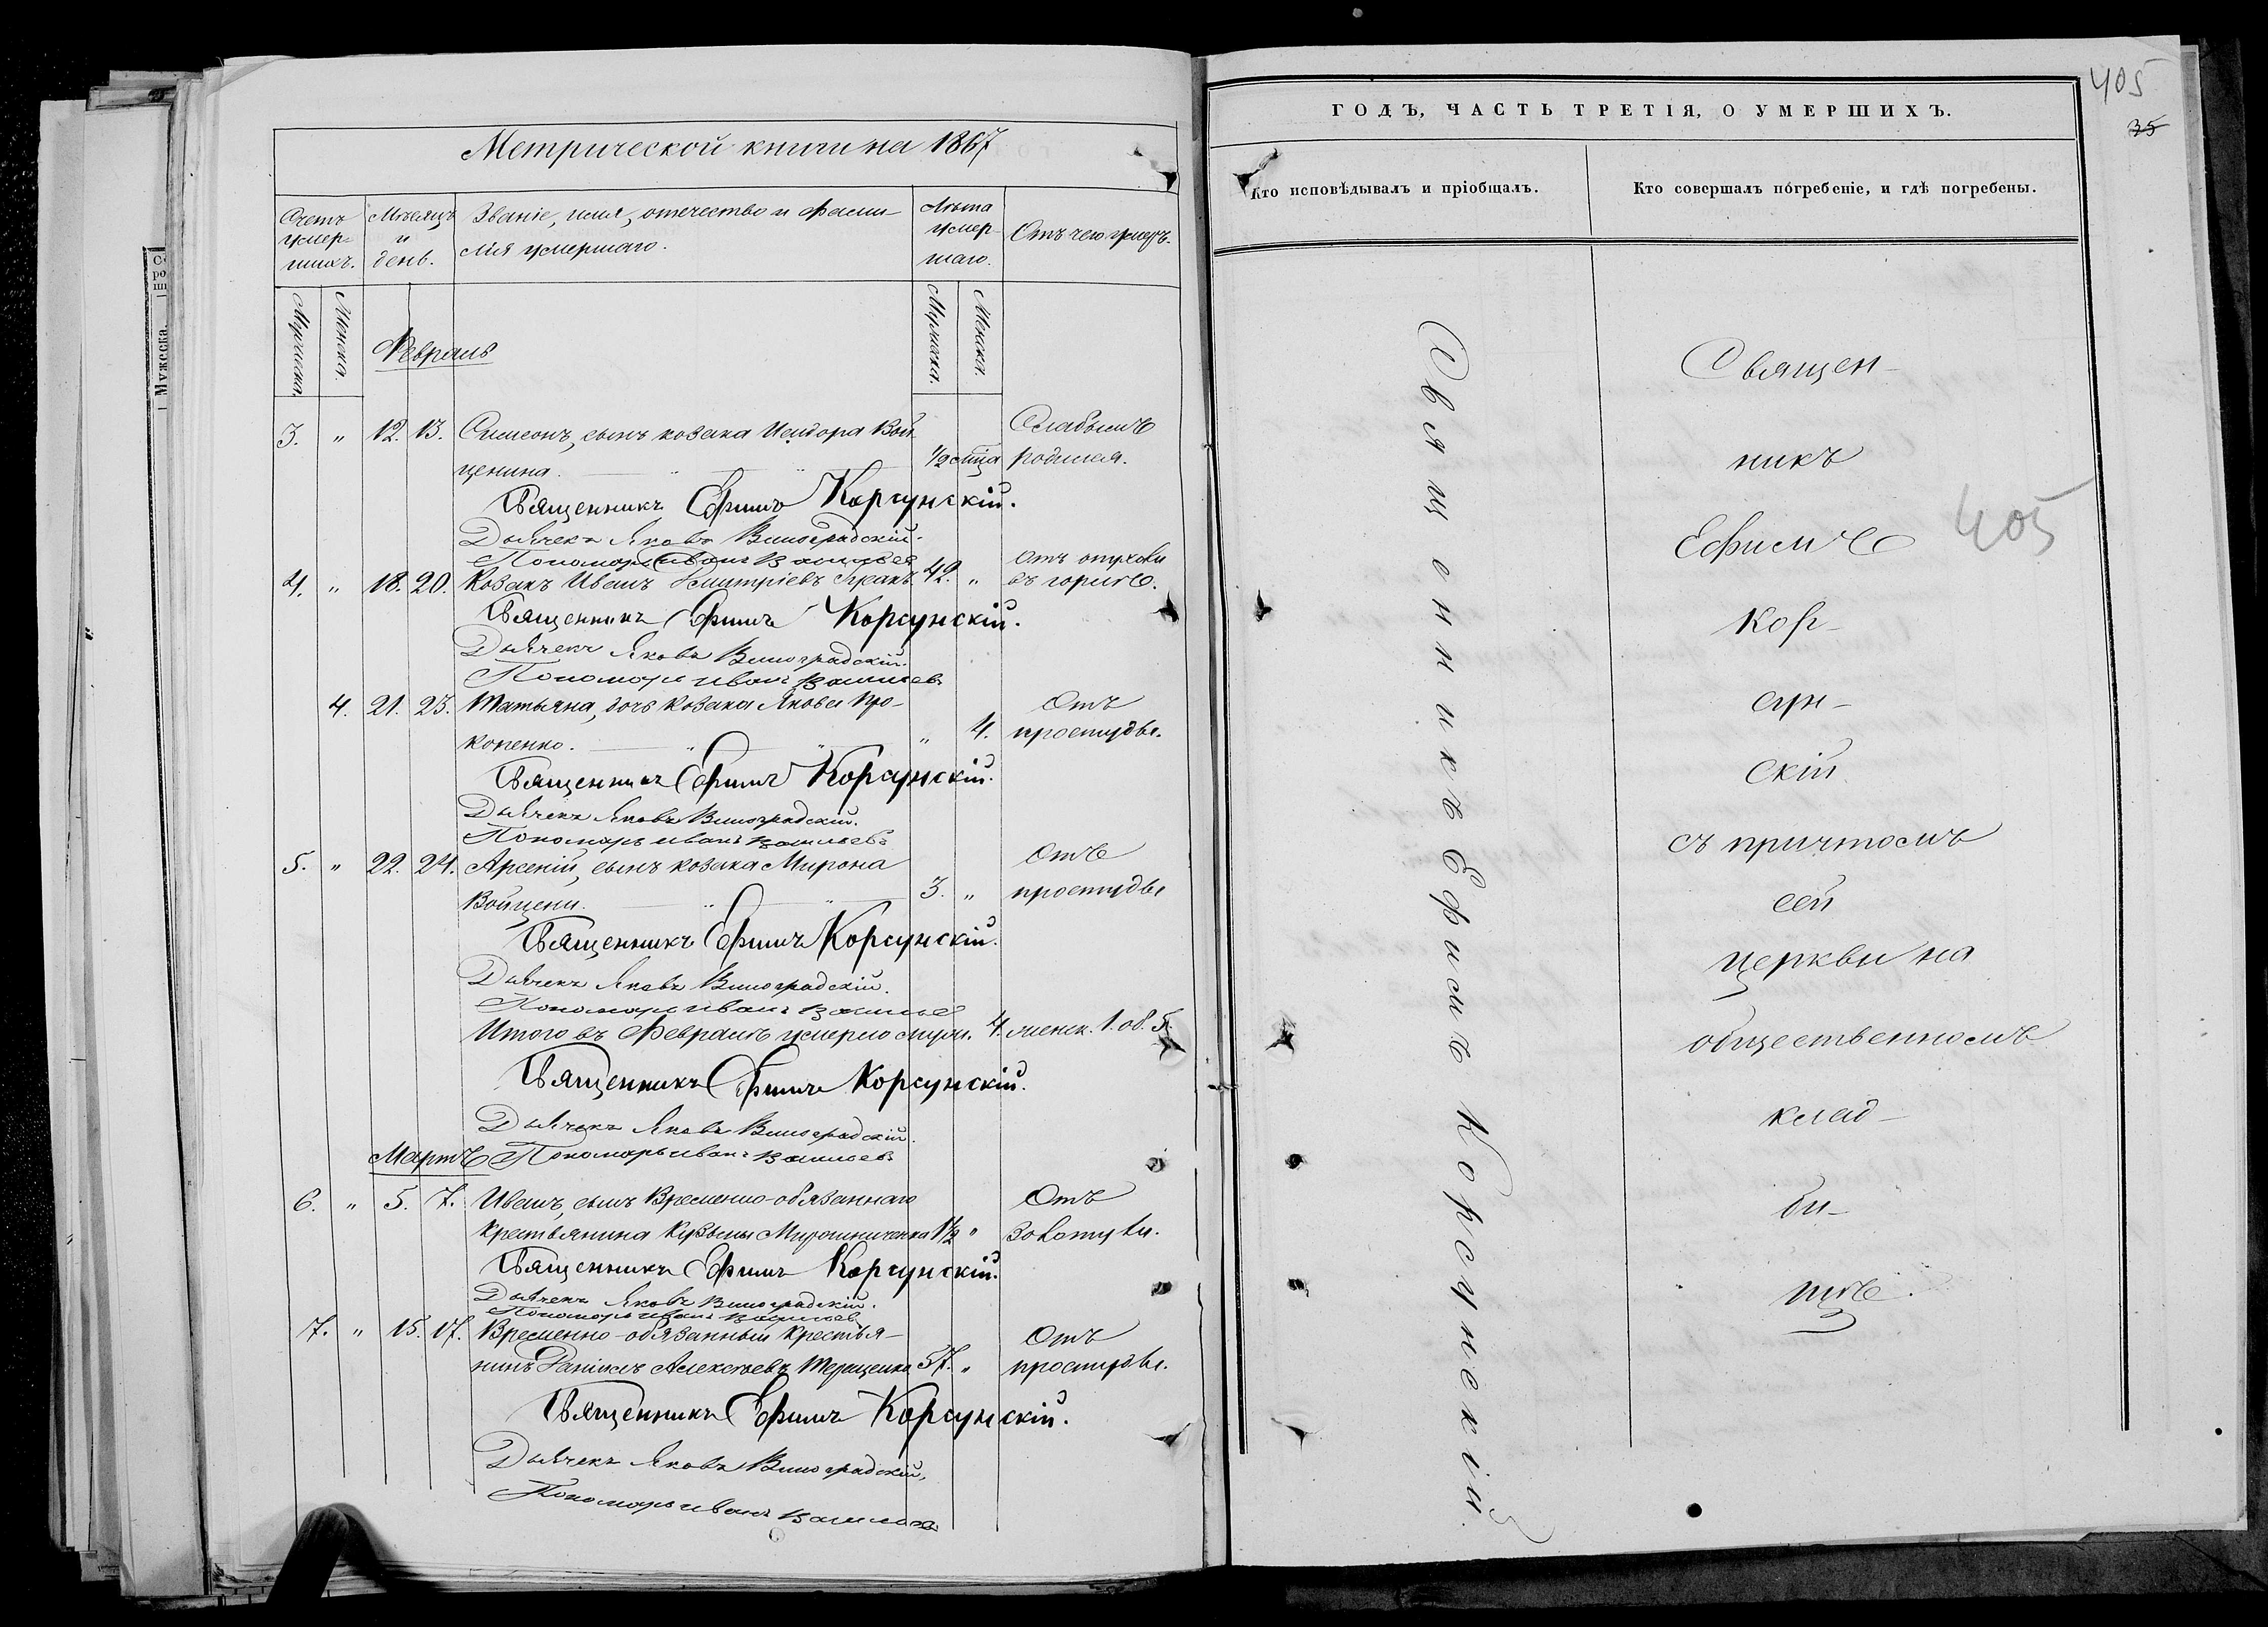 Метрической книги на 1867
Счетъ умер-шихъ.
Мѣсяцъ и день.
Званіе, имя, отечество и фами-
лія умершаго.
Лѣта умер-шаго.
Отъ чего умеръ.
Мужеска.
Женска.
Мужеска.
Женска.
Февраль
3. " 12. 13. Симеонъ, сынъ козака Исидора Вой- Слабымъ
ценина. " " 1/2 родился.
Священникъ Ефимъ Корсунскій.
Дьячекъ Яковъ Виноградскій.
Пономарь Иванъ Васильевъ
отъ опухоли
4. " 18. 20. Козакъ Иванъ Дмитріевъ 42. " въ горлѣ.
Священникъ Ефимъ Корсунскій.
Дьячекъ Яковъ Виноградскій.
Пономарь Иванъ Васильевъ
4. 21. 23. Татьяна, дочь козака Якова Про- Отъ
копенко. " " " 4. простуды.
Священникъ Ефимъ Корсунскій.
Дьячекъ Яковъ Виноградскій.
Пономарь Иванъ Васильевъ
5. " 22. 24. Арсеній, сынъ козака Мирона Отъ
Войцени. " " 3. " простуды
Священникъ Ефимъ Корсунскій.
Дьячекъ Яковъ Виноградскій.
Пономарь Иванъ Васильевъ
Итого въ Февралѣ умерло муж. 4. женск. 1. об. 5.
Священникъ Ефимъ Корсунскій.
Дьячекъ Яковъ Виноградскій.
Мартъ Пономарь Иванъ Васильевъ
6. " 5. 7. Иванъ, сынъ Временно-обязаннаго Отъ
крестьянина Кузьмы Мирошниченка 1 1/2 " золотухи.
Священникъ Ефимъ Корсунскій.
Дьячекъ Яковъ Виноградскій.
Пономарь Иванъ Васильевъ
7. " 15. 17. Временно-обязанный крестья- Отъ
нинъ Даніилъ Алексѣевъ Терещенко 57. " простуды.
Священникъ Ефимъ Корсунскій.
Дьячекъ Яковъ Виноградскій,
Пономарь Иванъ Васильевъ
405
35
ГОДЪ, ЧАСТЬ ТРЕТІЯ, О УМЕРШИХЪ.
Кто исповѣдывалъ и пріобщалъ.
Кто совершалъ погребеніе, и гдѣ погребены.
Священникъ Ефимъ Корсунскій
Священ-
никъ
Ефимъ
405
Кор-
сун-
скій
съ причтомъ
сей
церкви на
общественномъ
клад-
би-
щѣ.
Мужеска.